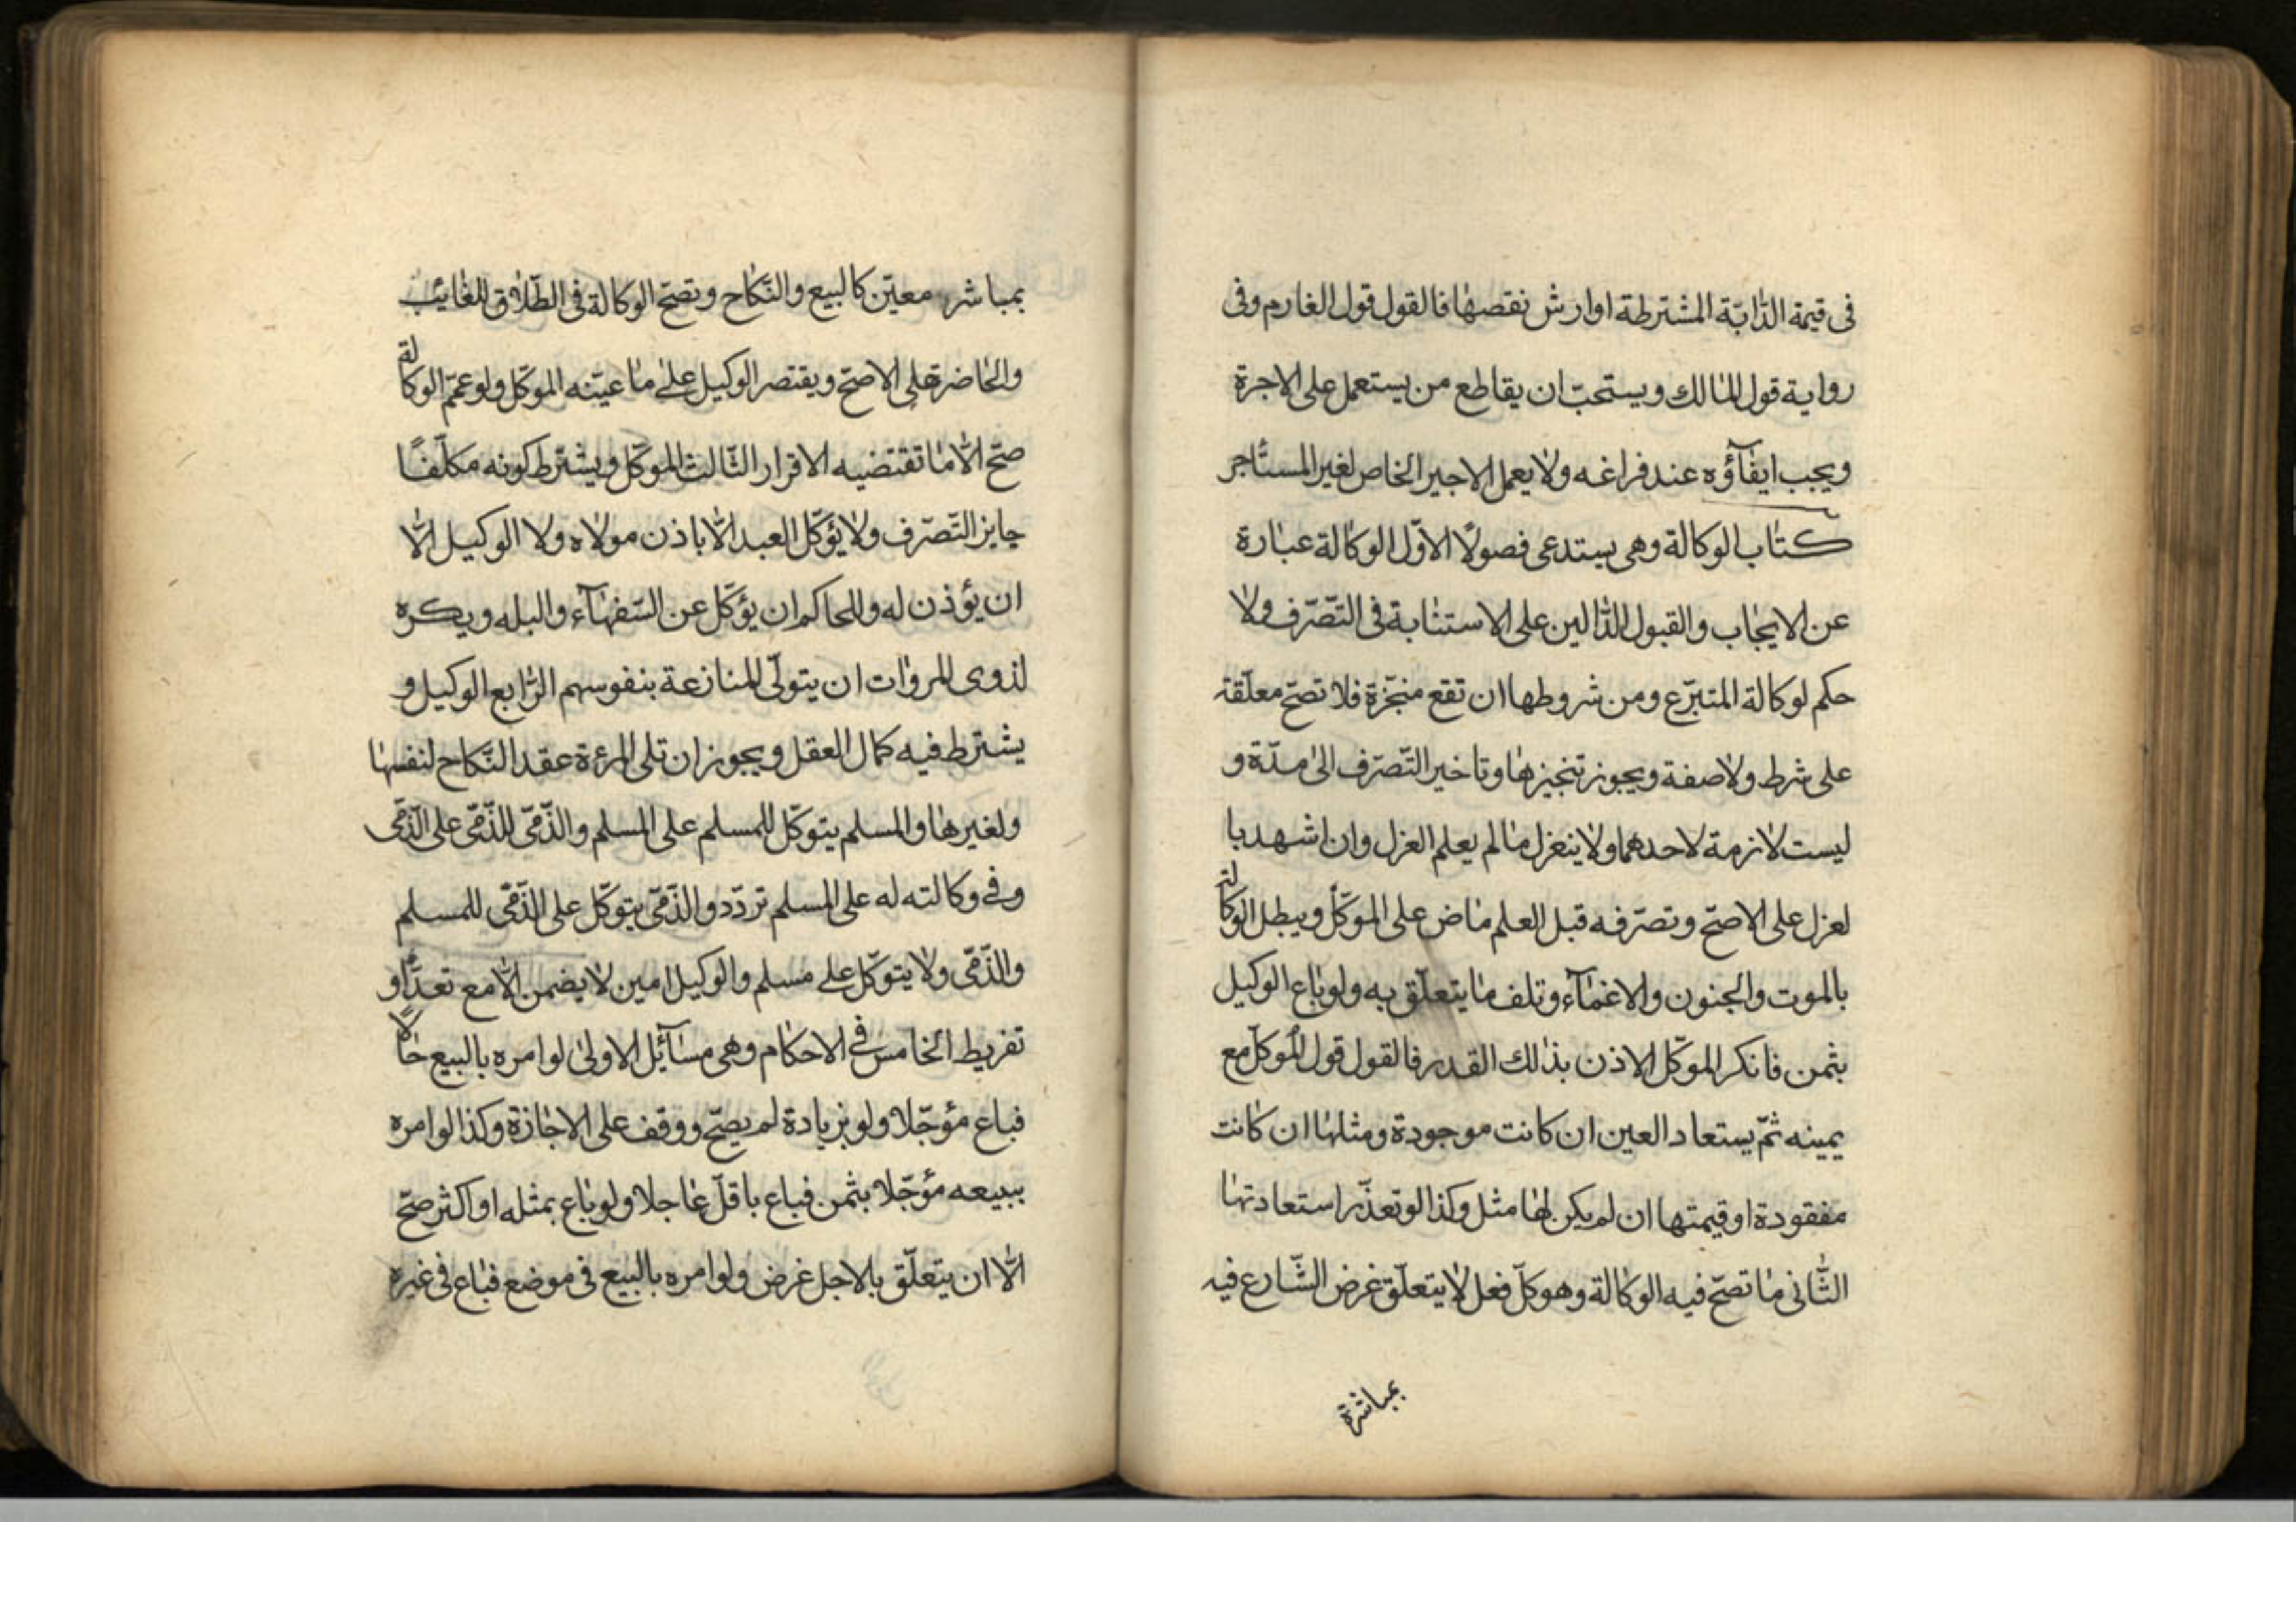 فى قيمة الدّابّة المشترطة او ارش نقصها فالقول قول الغارم وفى
رواية قول المالك ويستحبّ ان يقاطع من يستعمل على الاجرة
ويجب ايفآؤه عند فراغه ولا يعمل الاجير الخاص لغير المستأجر
كتاب الوكالة وهى يستدعى فصولًا الاوّل الوكالة عبارة
عن الايجاب والقبول الدّالين على الاستنابة فى التّصّرف ولا
حكم لوكالة المتبرّع ومن شروطها ان تقع منجّزة فلا تصحّ معلّقة
على شرط ولا صفة ويجوز تنجيزها وتاخير التّصرّف الى مدّة و
ليست لازمة لاحدهما ولا ينعزل ما لم يعلم العزل وان اشهد با
لعزل على الاصحّ وتصرّفه قبل العلم ماض على الموكّل ويبطل الوكالة
بالموت والجنون والاغمآء وتلف ما يتعلّق به ولو باع الوكيل
بثمن فانكر الموكّل الاذن بذلك القدر فالقول قول الموكّل مع
يمينه ثمّ يستعاد العين ان كانت موجودة ومثلها ان كانت
مفقودة او قيمتها ان لم يكن لها مثل وكذا لو تعذّر استعادتها
الثّانى ما تصحّ فيه الوكالة وهو كلّ فعل لا يتعلّق غرض الشّارع فيه
بمباشرة
بمباشر معيّن كالبيع والنّكاح وتصحّ الوكالة فى الطّلاق للغائب
والحاضرة على الاصحّ ويقتصر الوكيل على ما عيّنه الموكّل ولو عمّم الوكالة
صحّ الّا ما تقتضيه الاقرار الثّالث الموكّل ويشترط كونه مكلّفًا
جايز التّصرّف ولا يؤكّل العبد الّا باذن مولاه ولا الوكيل الّا
ان يؤذن له وللحاكم ان يؤكّل عن السّفهآء والبله ويكره
لذوى المروات ان يتولّى المنازعة بنفوسهم الرّابع الوكيل و
يشترط فيه كمال العقل ويجوز ان تلى المرءة عقد النّكاح لنفسها
ولغيرها والمسلم يتوكّل للمسلم على المسلم والذّمّى للذّمّى على الذّمّى
وفى وكالته له على المسلم تردّد والذّمّى يتوكّل على الذّمّى للمسلم
والذّمّى ولا يتوكّل على مسلم والوكيل امين لا يضمن الّا مع تعدٍّ او
تفريط الخامس فى الاحكام وهى مسآئل الاولى لو امره بالبيع حالًا
فباع مؤجّلا ولو بزيادة لم يصحّ ووقف على الاجازة وكذا لو امره
ببيعه مؤجّلا بثمن فباع باقلّ عاجلا ولو باع بمثله او اكثر صحّ
الّا ان يتعلّق بالاجل غرض ولو امره بالبيع فى موضع فباع فى غيره